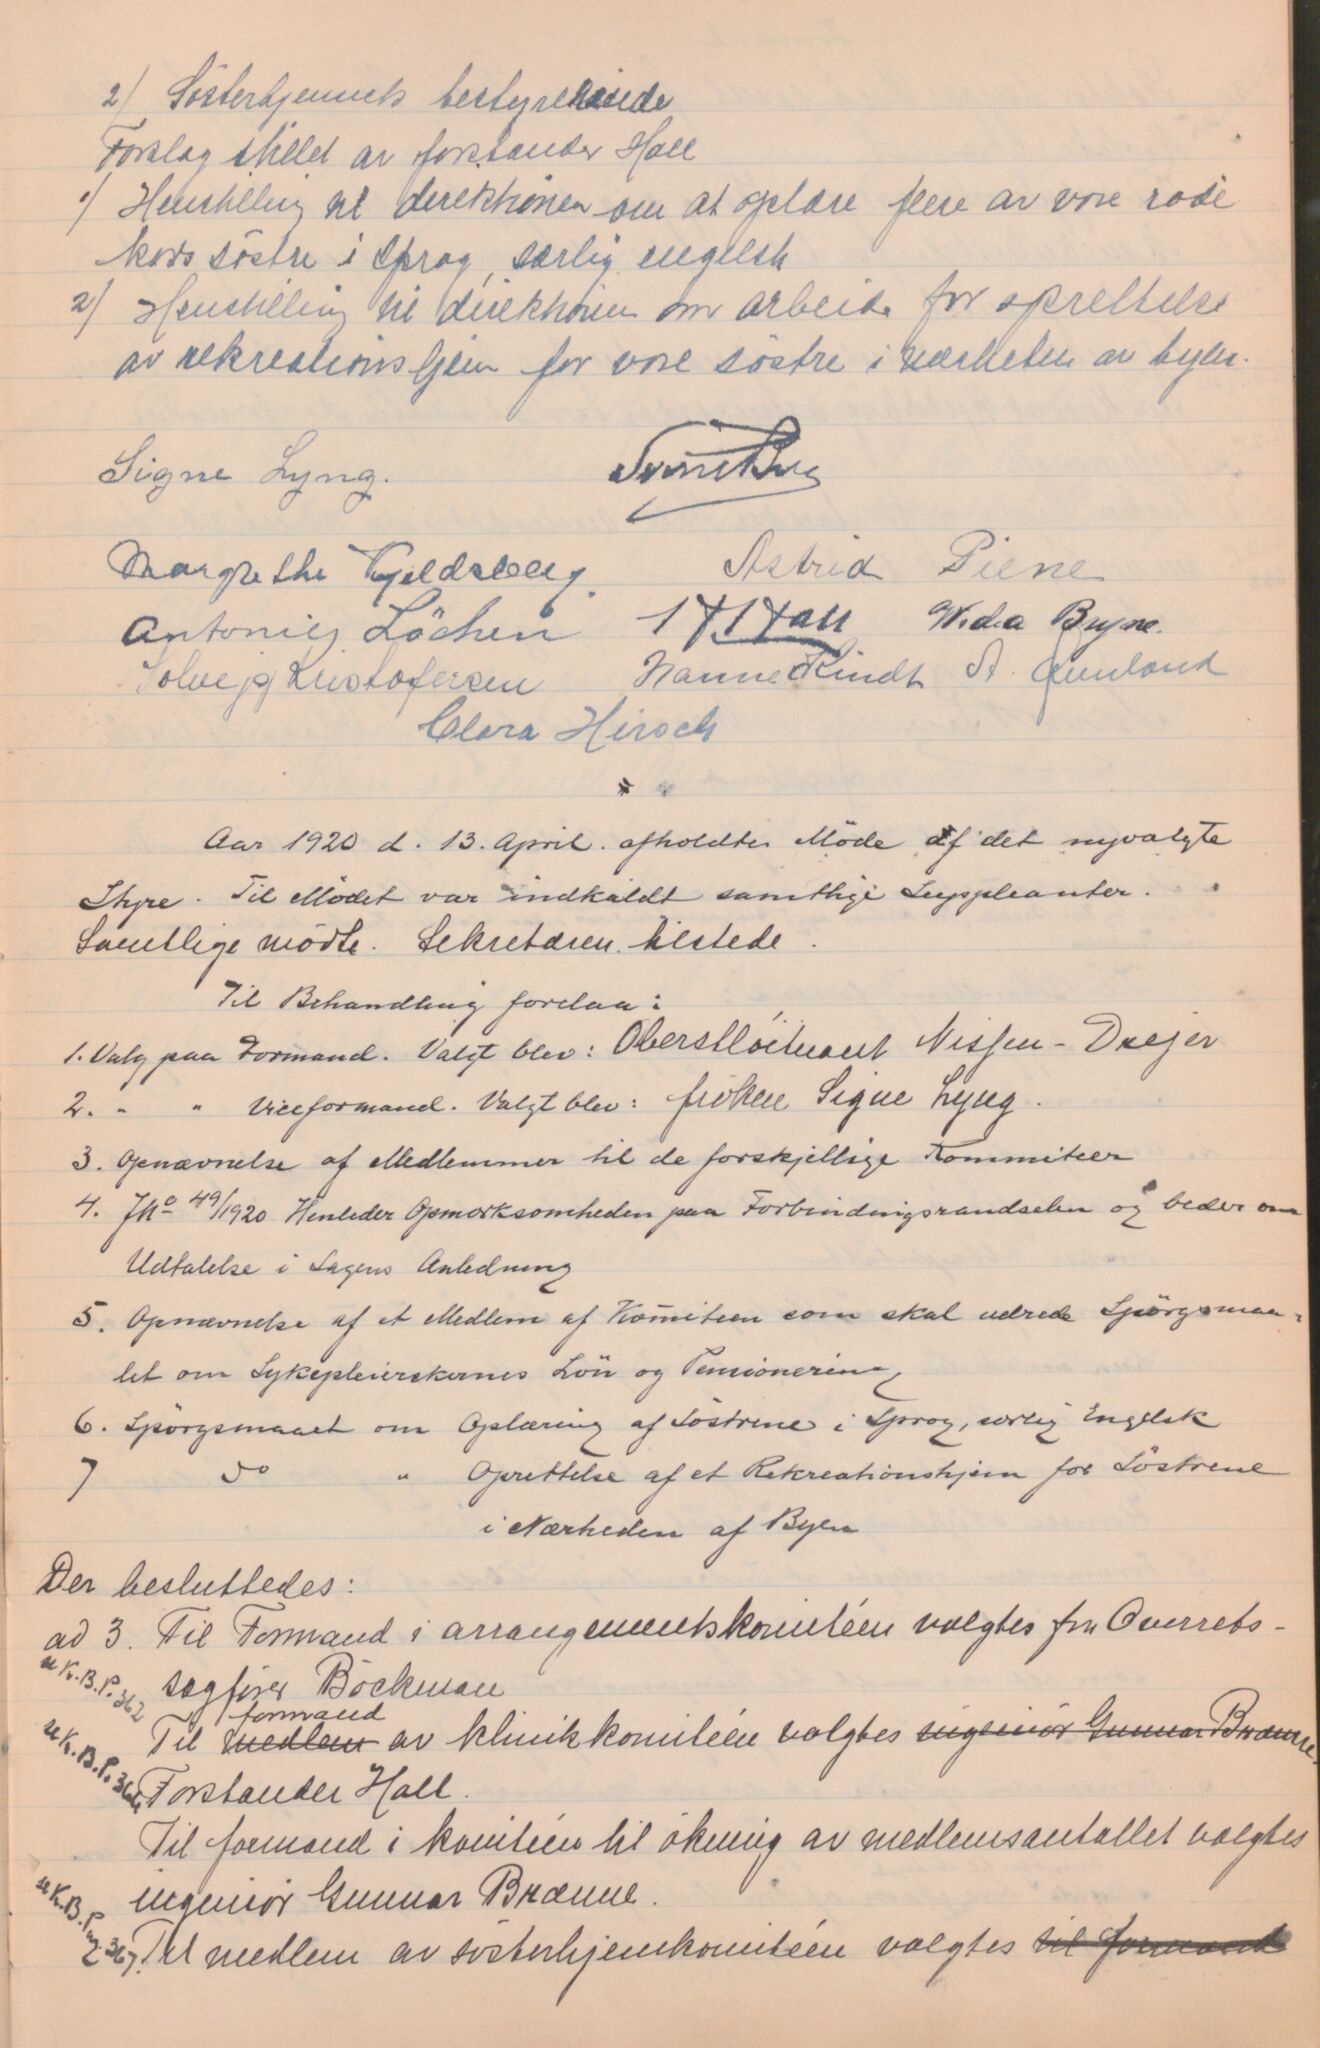 2) Søsterhjemmets bestyrerinde
Forslag stillet av forstander Hall
1) Henstilling til direktionen om at oplære flere av vore røde
kors søstre i sprog, særlig engelsk
2) Henstilling til direktionen om arbeide for oprettelse
av rekreationshjem for vore søstre i nærheten av byen.
Signe Lyng.
Margrethe Kjeldsberg. Astrid Piene
Antonie Löchen Hall Wida Bryne.
Solveig Kristofersen Hanne Kindt A.
Clara Hirsch
Aar 1920 d. 13. April. afholdtes Møde af det nyvalgte
Styre. Til Mødet var indkaldt samtlige Suppleanter.
Samtlige mødte. Sekretæren tilstede.
Til Behandling forelaa:
1. Valg paa Formand. Valgt blev: Oberstløitnant Nissen-Drejer
2. " " Viceformand. Valgt blev: frøken Signe Lyng.
3. Opnævnelse af Medlemmer til de forskjellige Kommiteer
4. JNo 49/1920 Henleder Opmerksomheden paa Forbindingsrandselen og beder om
Udtalelse i Sagens Anledning
5. Opnævnelse af et Medlem af Komiteen som skal utrede Spørgsmaa-
let om Sykepleierskernes Løn og Pensionering
6. Spørgsmaaet om Oplæring af Søstrene i Sprog, særlig Engelsk
7 do " Oprettelse af et Rekreationshjem for Søstrene
i Nærheden af Byen
Der besluttedes:
ad 3. Til Formand i arrangementskomitéen valgtes fru Overrets-
se K.B.P. 362 sagfører Böckman
formand
Til medlem av klinikkomitéen valgtes ingeniør Gunnar Brænne.
se K.B.P. 364 Forstander Hall.
Til formand i komitéen til økning av medlemsantallet valgtes
ingeniør Gunnar Brænne.
se K.B.P. 367. Til medlem av søsterhjemkomitéen valgtes til formand